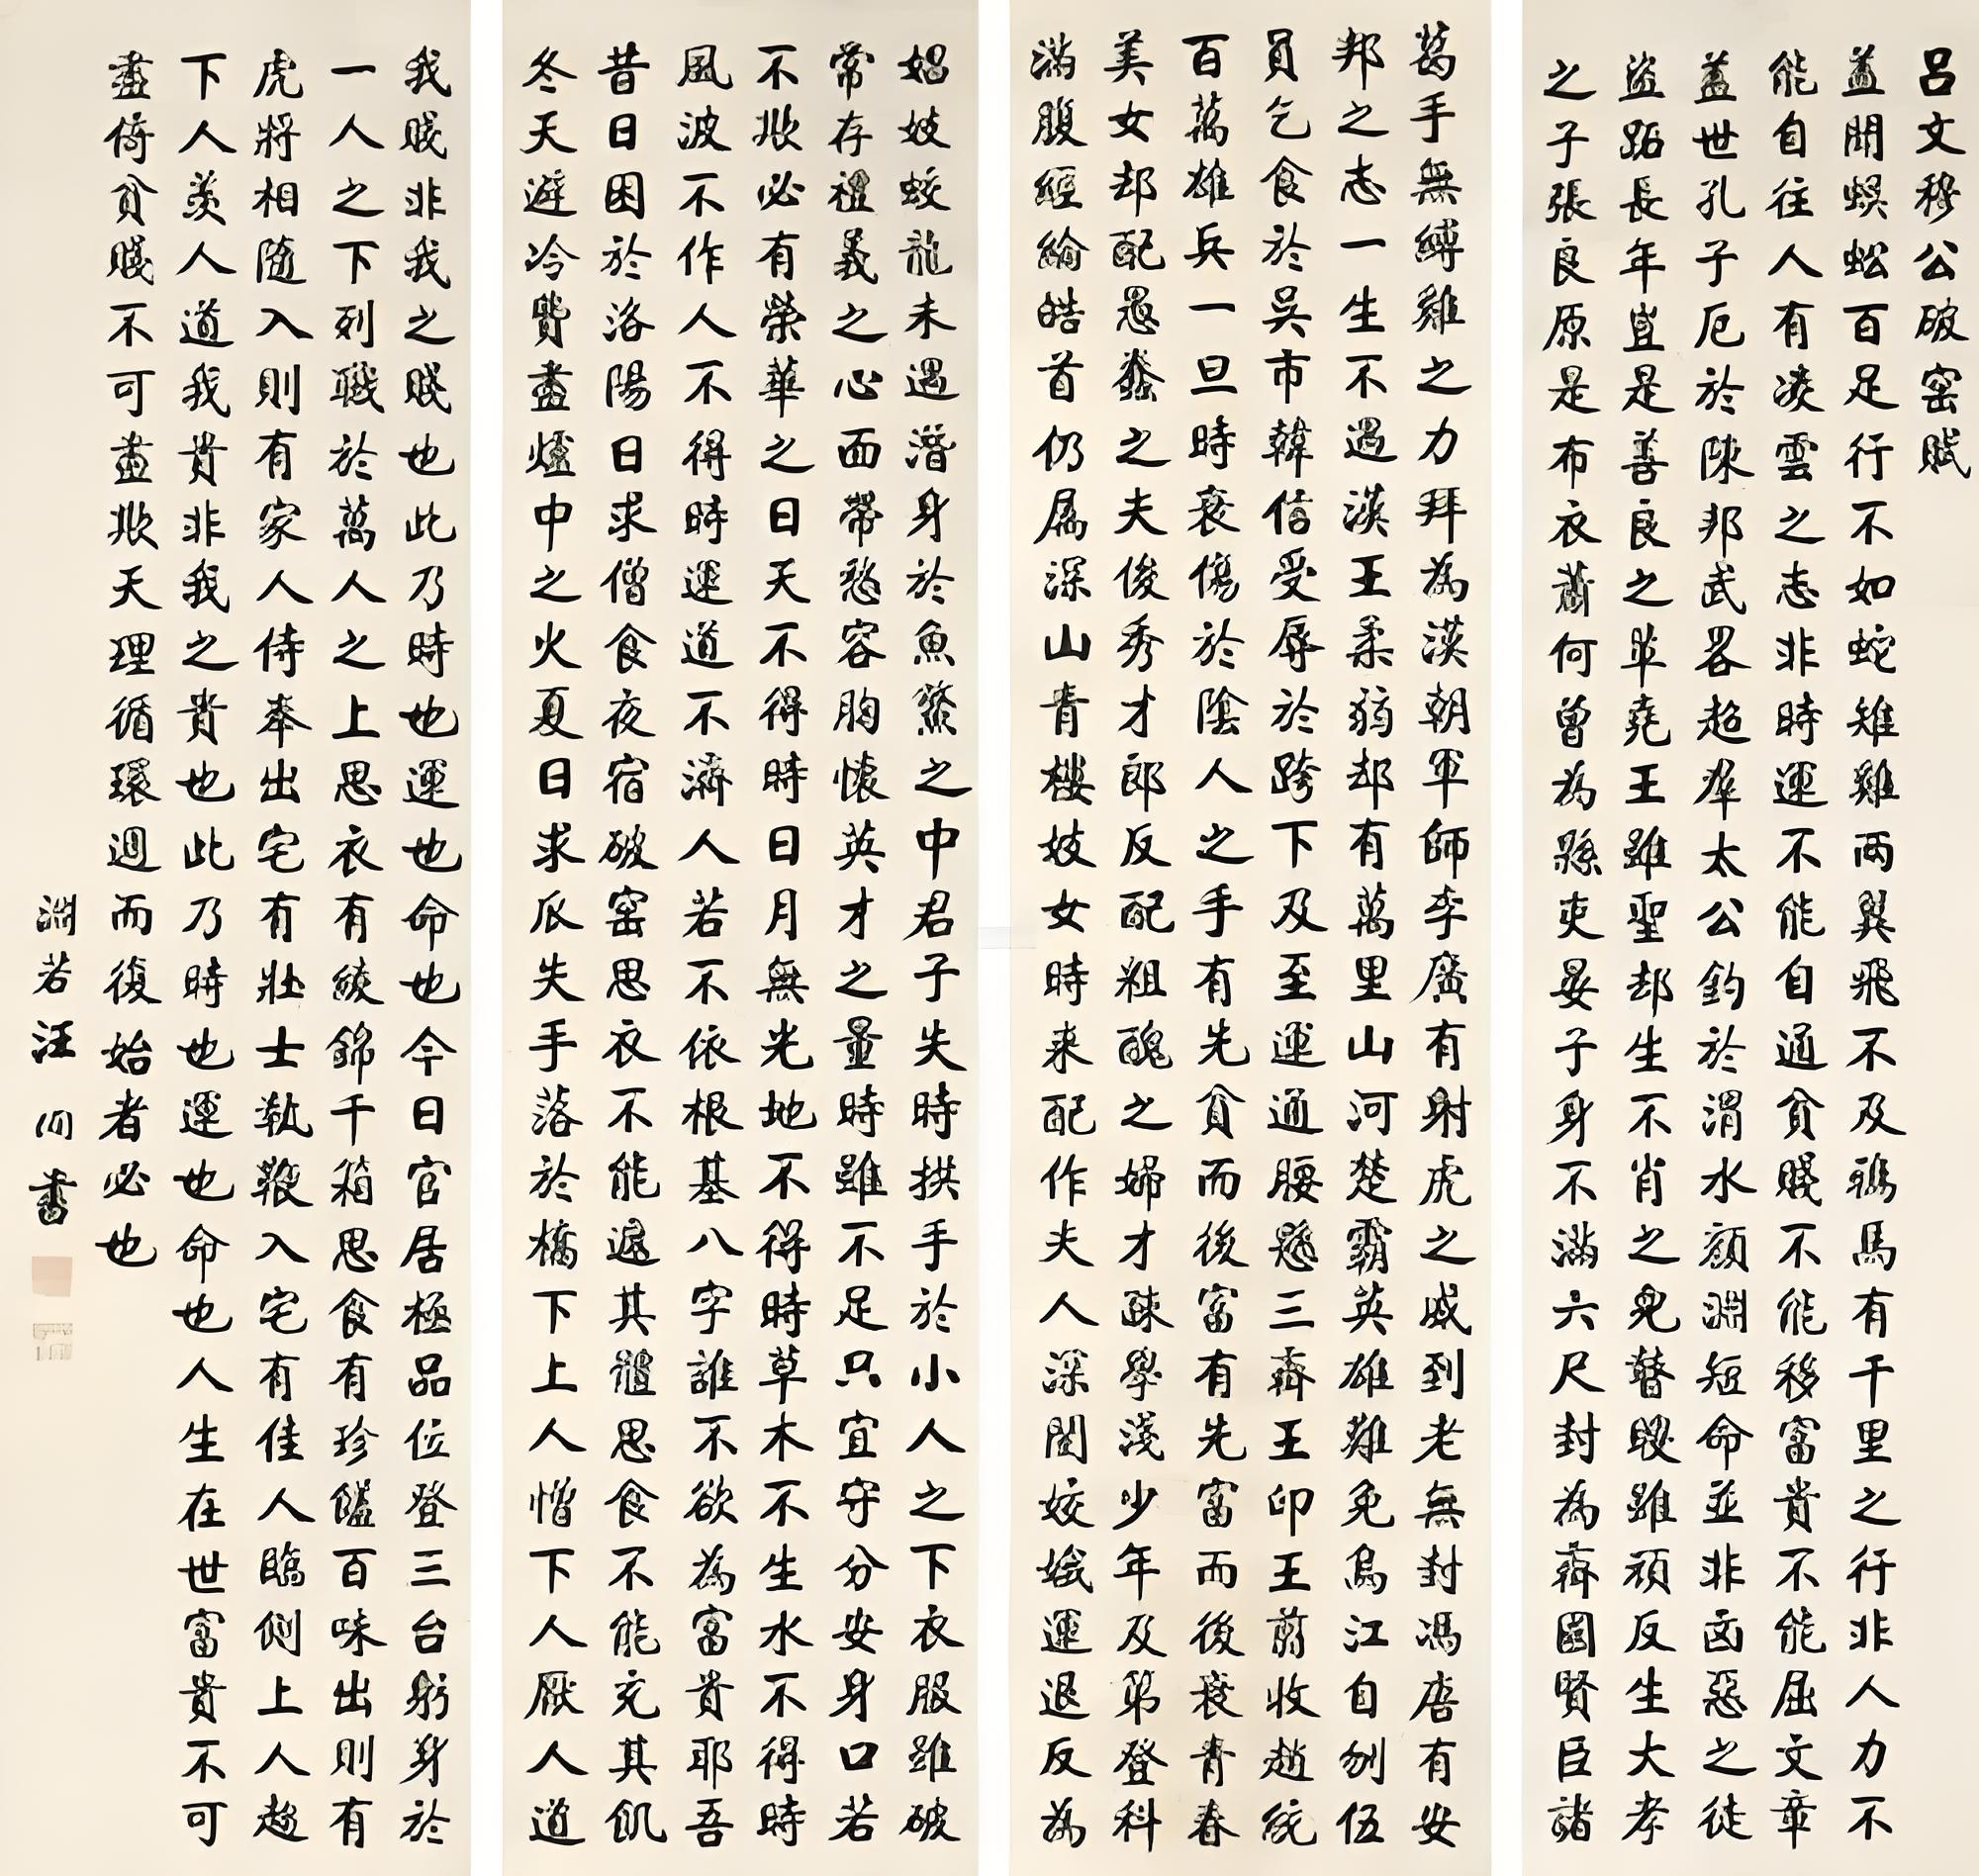 呂文穆公破窑賦
蓋聞蜈蚣百足行不如蛇雉雞兩翼飛不及鴉馬有千里之行非人力不
能自往人有凌雲之志非時運不能自通貧賤不能移富貴不能屈文章
蓋世孔子厄於陳邦武畧超羣太公釣於渭水顏淵短命並非凶惡之徒
盜跖長年豈是善良之軰堯王雖聖却生不肖之兒瞽瞍雖頑反生大孝
之子張良原是布衣蕭何曾為縣吏晏子身不滿六尺封為齊國賢臣諸
葛手無縛雞之力拜為漢朝軍師李廣有射虎之威到老無封馮唐有安
邦之志一生不遇漢王柔弱却有萬里山河楚霸英雄難免烏江自刎伍
員乞食於吳市韓信受辱於跨下及至運通腰懸三齊王印王翦收趙統
百萬雄兵一旦時衰傷於陰人之手有先貧而後富有先富而後衰青春
美女却配愚蠢之夫俊秀才郎反配粗醜之婦才疎學淺少年及第登科
滿腹經綸皓首仍屬深山青樓妓女時来配作夫人深閨姣娥運退反為
娼妓蛟龍未遇潛身於魚鱉之中君子失時拱手於小人之下衣服雖破
常存禮義之心面帶愁容胸懷英才之量時雖不足只宜守分安身口若
不欺必有榮華之日天不得時日月無光地不得時草木不生水不得時
風波不作人不得時運道不濟人若不依根基八字誰不欲為富貴耶吾
昔日困於洛陽日求僧食夜宿破窑思衣不能遮其體思食不能充其飢
冬天避冷費盡爐中之火夏日求瓜失手落於橋下上人憎下人厭人道
我賤非我之賤也此乃時也運也命也今日官居極品位登三台躬身於
一人之下列職於萬人之上思衣有綾錦千箱思食有珍饈百味出則有
虎將相隨入則有家人侍奉出宅有壯士執鞭入宅有佳人臨側上人趨
下人羨人道我貴非我之貴也此乃時也運也命也人生在世富貴不可
盡倚貧賤不可盡欺天理循環週而復始者必也
淵若汪洵書